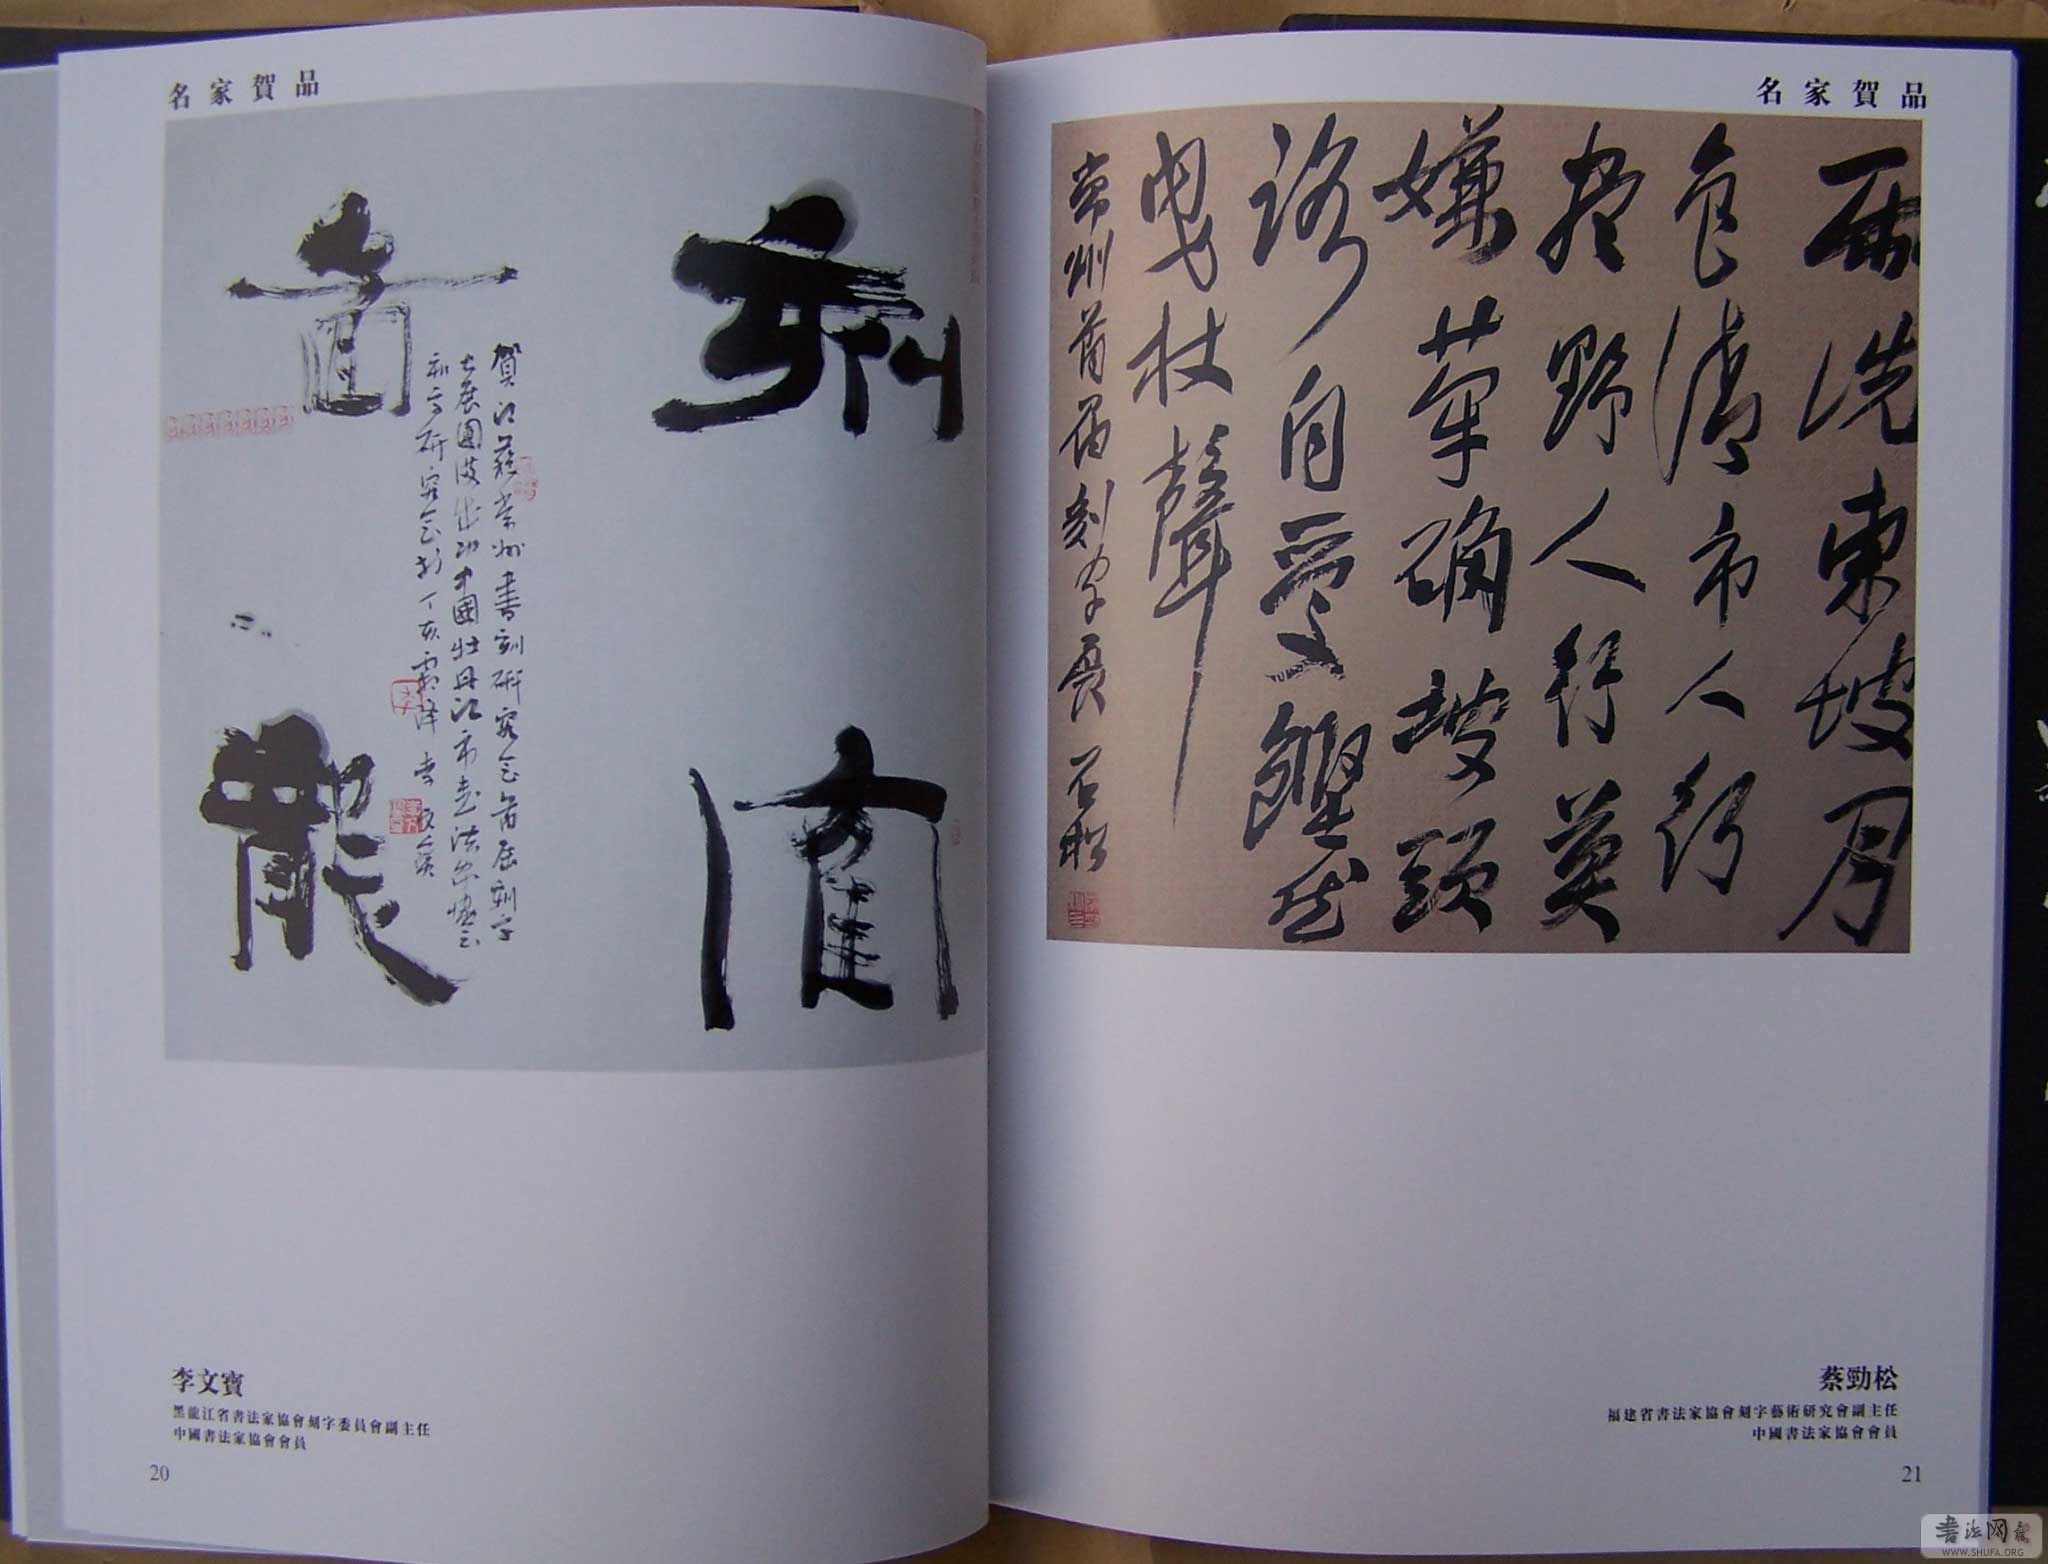 名家賀品
賀江蘇常州書刻研究會首屆刻字
大展圓滿成功中國牡丹江市書法家協會
刻字研究會於丁亥霜降
李文寶
黑龍江省書法家協會刻字委員會副主任
中國書法家協會會員
20
名家賀品
雨洗東坡月
色清市人行
盡野人行莫
嫌犖确坡頭
路自愛鏗然
曳杖聲
常州首屆刻字展 石松
蔡勁松
福建省書法家協會刻字藝術研究會副主任
中國書法家協會會員
21
書法网
WWW.SHUFA.ORG